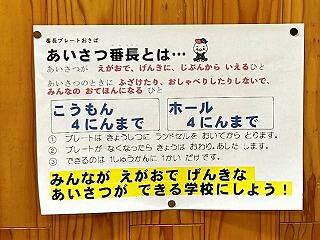 番長プレートおきば
あいさつ番長とは…
あいさつが えがおで、げんきに、じぶんから いえるひと
あいさつのときに ふざけたり、おしゃべりしたりしないで、
みんなの おてほんになる ひと
こうもん
4にんまで
ホール
4にんまで
① プレートは きょうしつに ランドセルを おいてから とります。
② プレートが なくなったら きょうは おわり。あした します。
③ できるのは 1しゅうかんに 1かい だけです。
みんなが えがおで げんきな
あいさつが できる学校にしよう!